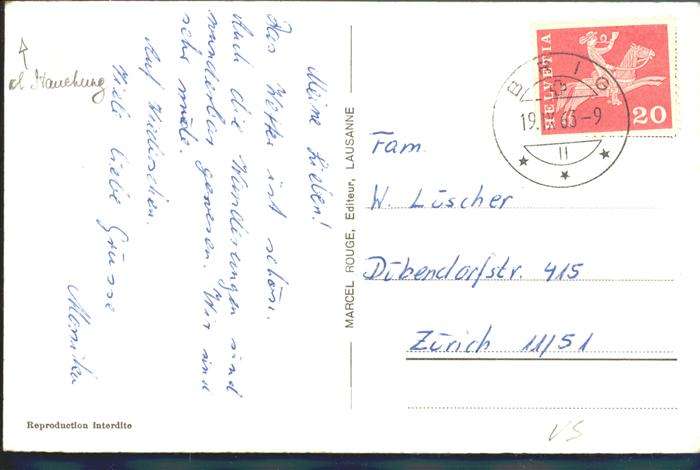 Meine Lieben!
Das Wetter ist schön.
Auch die Wanderungen sind
wunderbar gewesen. Wir sind
sehr müde.
Auf Wiedersehen.
Viele liebe Grüsse
Monika
Reproduction interdite
MARCEL ROUGE, Editeur, LAUSANNE
HELVETIA
20
BRIG
19. 65-9
11
Fam.
W. Lüscher
Dübendorfstr. 415
Zürich 11/51
VS